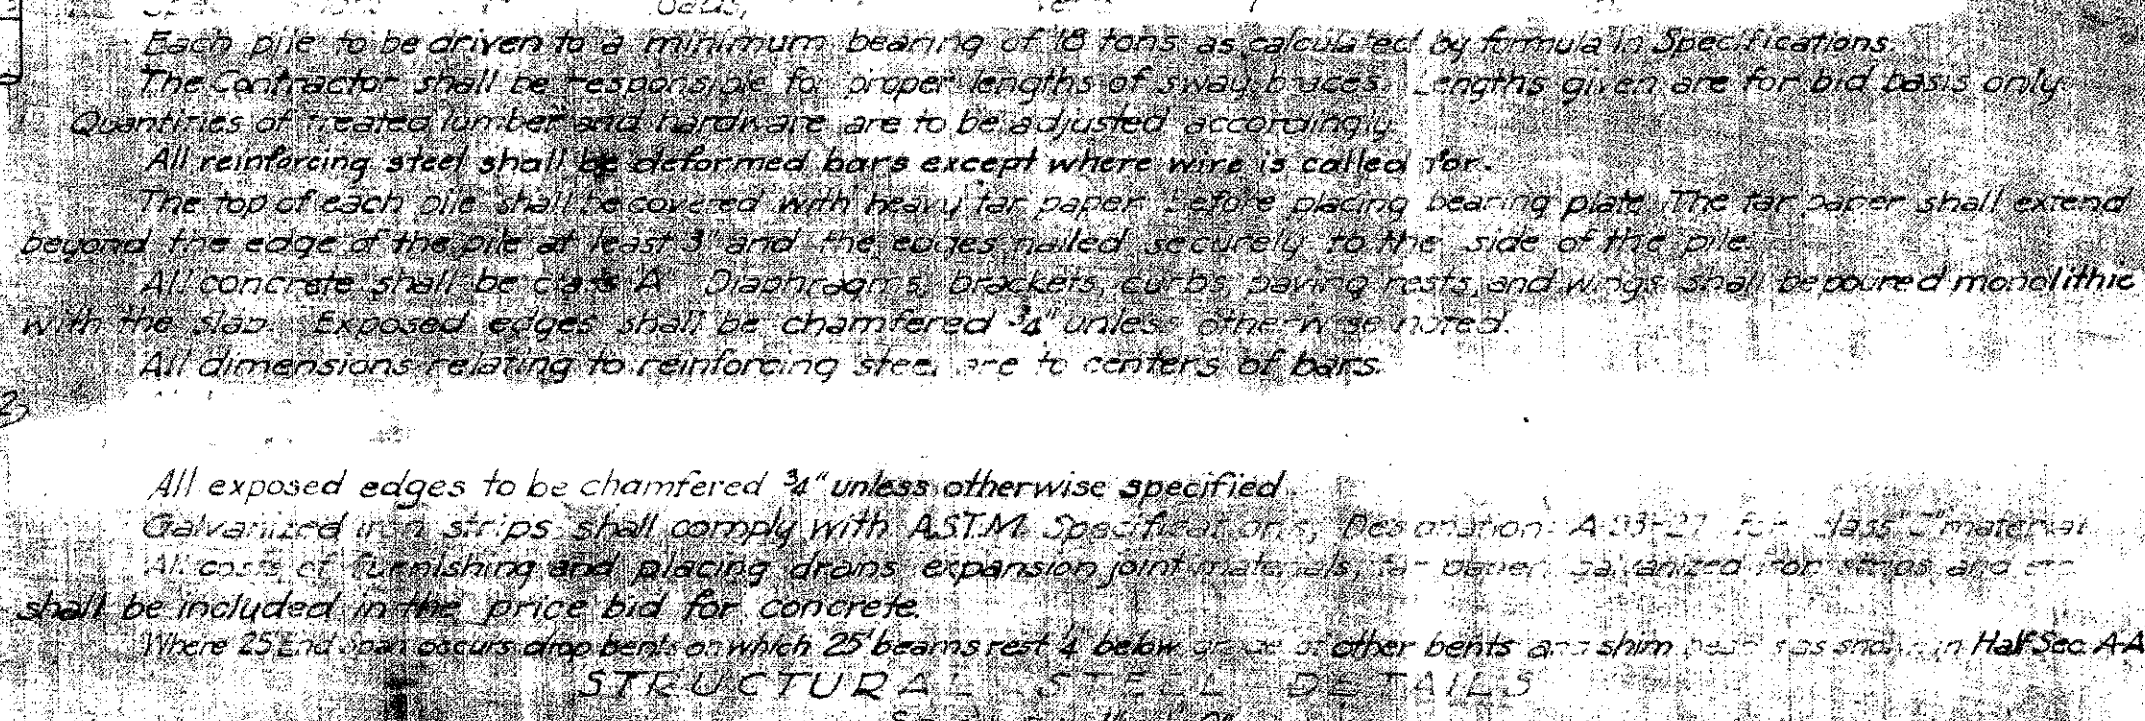 Each pile to be driven to a minimum bearing of 18 tons as calculated by formula in Specifications.
The Contractor shall be responsible for proper lengths of sway braces. Lengths given are for bid basis only.
Quantities of treated lumber and hardware are to be adjusted accordingly.
All reinforcing steel shall be deformed bars except where wire is called for.
The top of each pile shall be covered with heavy tar paper before placing bearing plate. The tar paper shall extend
beyond the edge of the pile at least 3" and the edges nailed securely to the side of the pile.
All concrete shall be class "A". Diaphragms, brackets, curbs, paving rests, and wings shall be poured monolithic
with the slab. Exposed edges shall be chamfered 3/4" unless otherwise noted.
All dimensions relating to reinforcing steel are to centers of bars.
All exposed edges to be chamfered 3/4" unless otherwise specified.
Galvanized iron strips shall comply with A.S.T.M. Specifications, Designation: A-93-27 for class material
All costs of furnishing and placing drains expansion joint materials, tar paper, galvanized iron strips, and
shall be included in the price bid for concrete.
Where 25' End Span occurs drop bents on which 25' beams rest 4" below grade of other bents and shim as shown in Half Sec. A-A
STRUCTURAL STEEL DETAILS